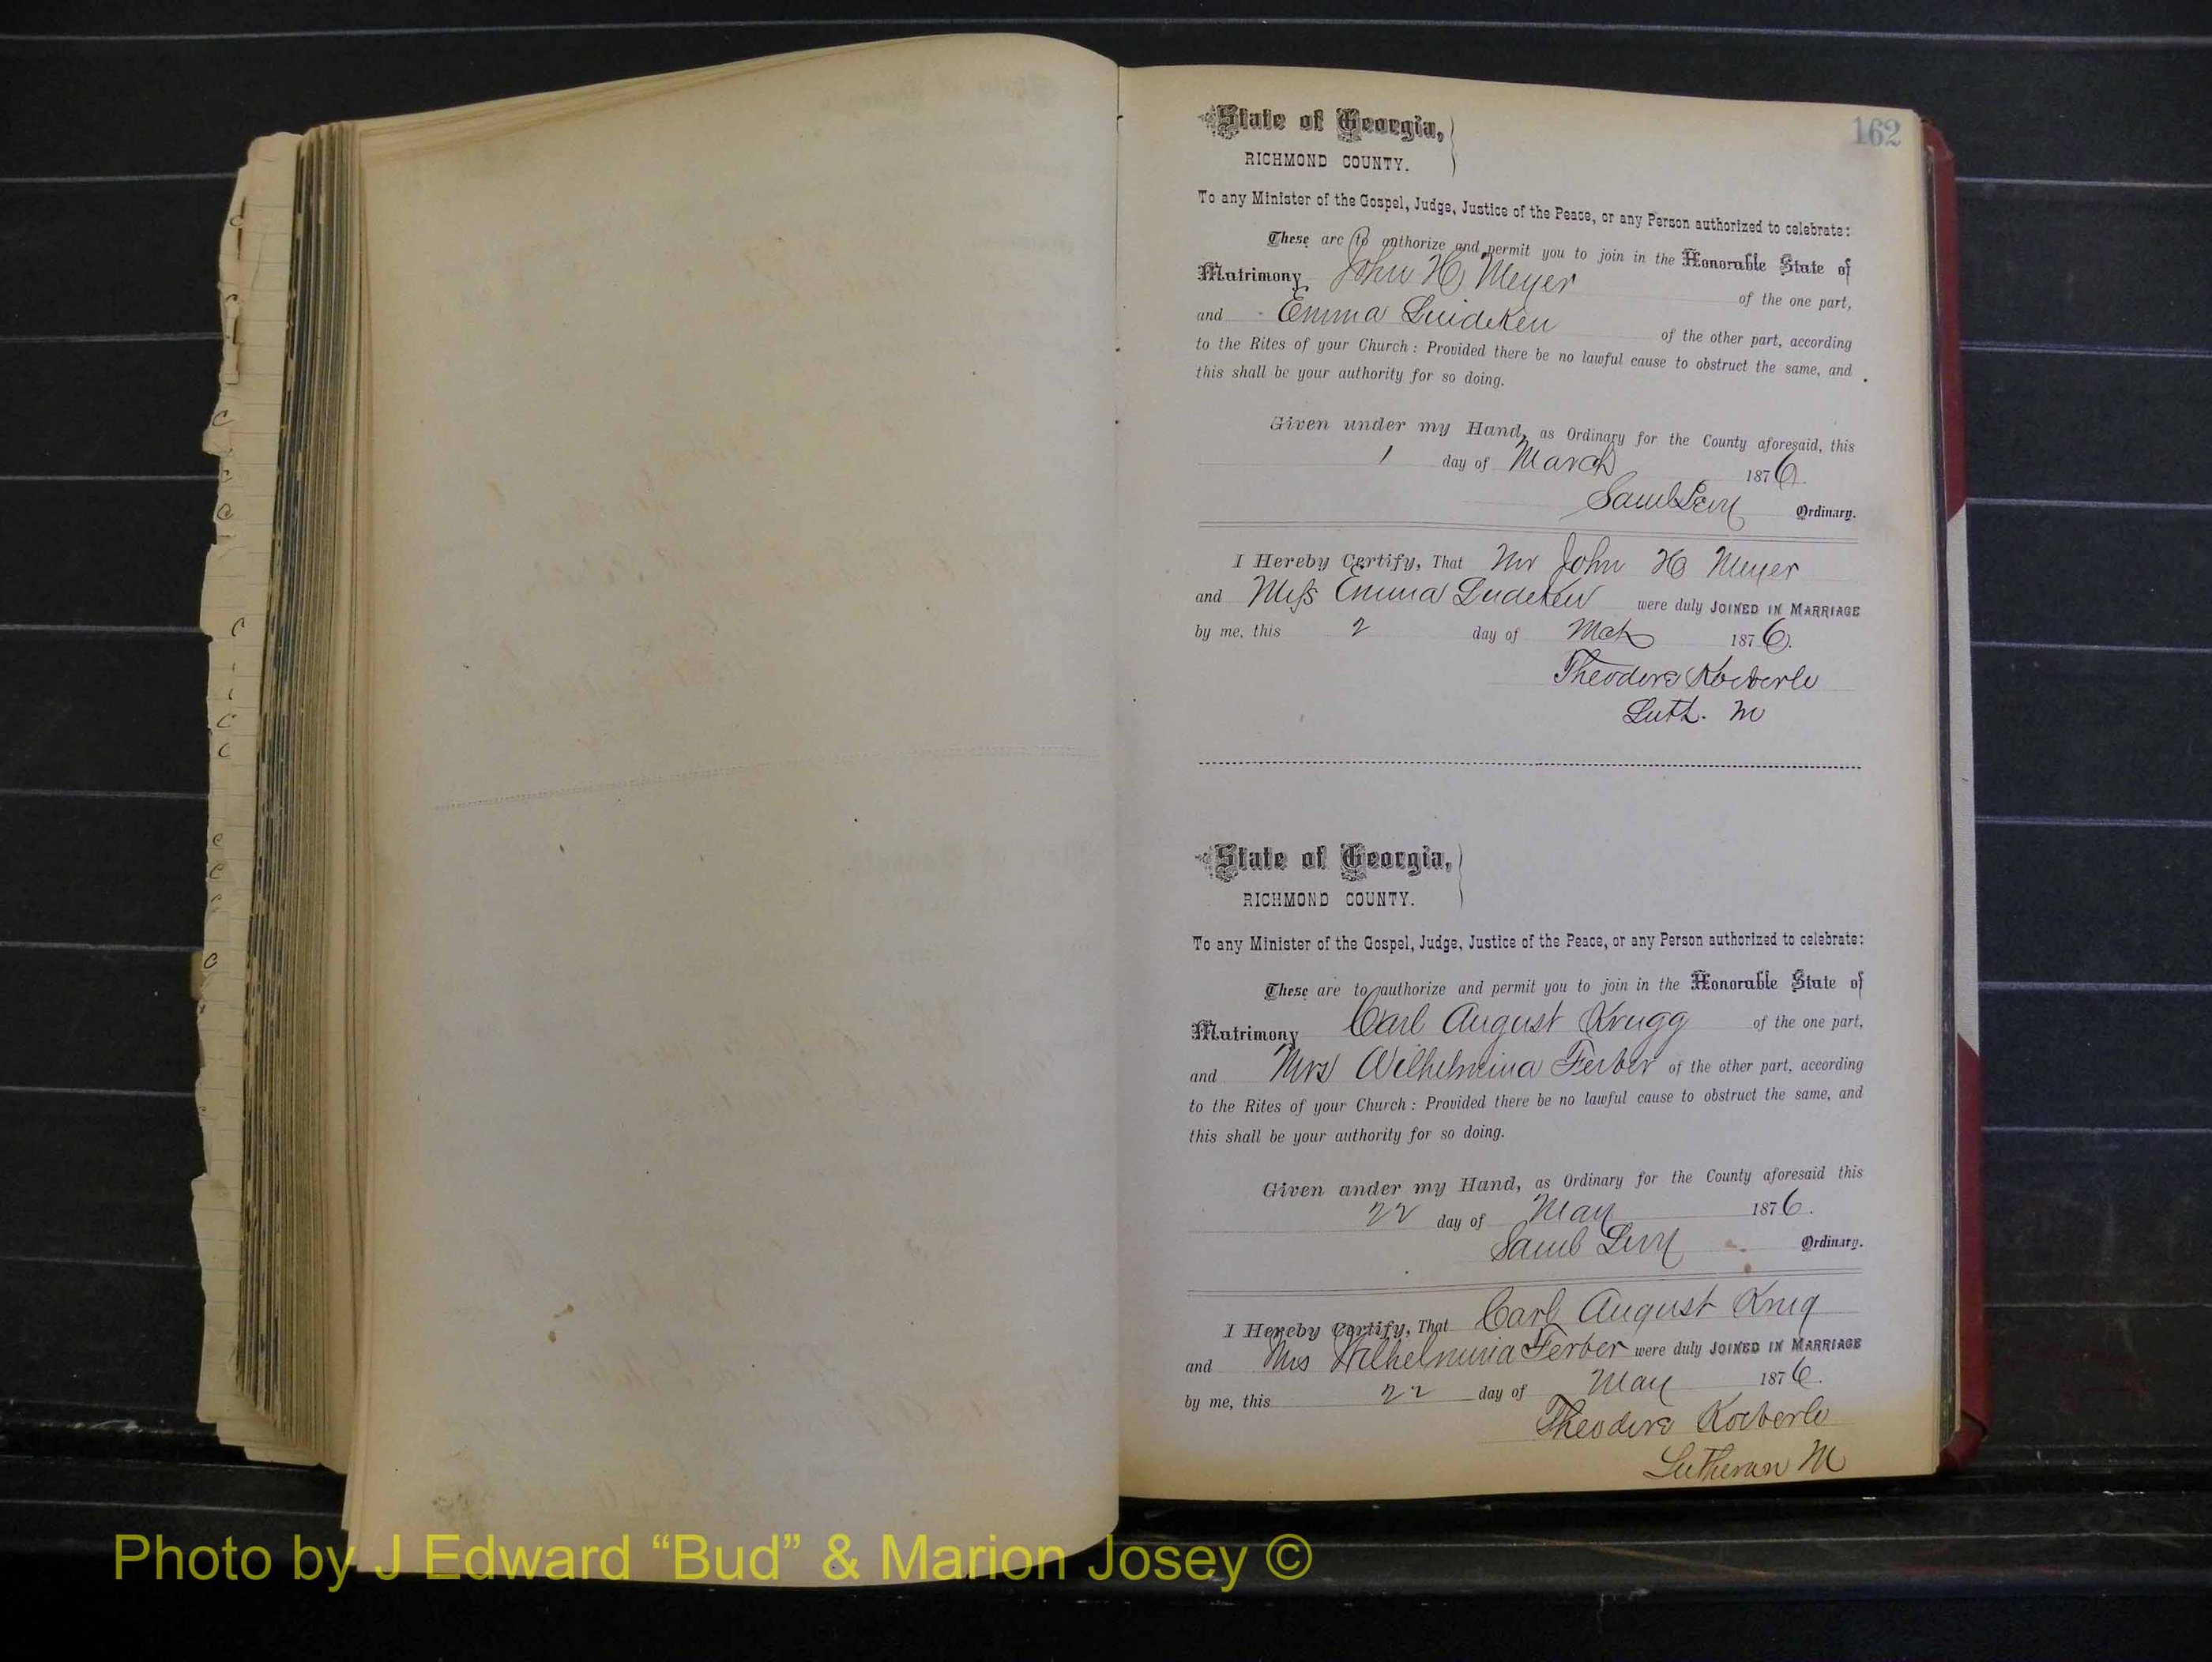 162
State of Georgia,
RICHMOND COUNTY.
To any Minister of the Gospel, Judge, Justice of the Peace, or any Person authorized to celebrate:
These are to authorize and permit you to join in the Honorable State of
Matrimony John H Meyer of the one part,
and Emma Luideken of the other part, according
to the Rites of your Church : Provided there be no lawful cause to obstruct the same, and
this shall be your authority for so doing.
Given under my Hand, as Ordinary for the County aforesaid, this
1 day of March 1876.
Saml Levy Ordinary.
I Hereby Certify, That Mr John H Meyer
and Miss Emma Ludeken were duly JOINED IN MARRIAGE
by me, this 2 day of Mch 1876.
Theodore Koeberle
Luth. M
State of Georgia,
RICHMOND COUNTY.
To any Minister of the Gospel, Judge, Justice of the Peace, or any Person authorized to celebrate:
These are to authorize and permit you to join in the Honorable State of
Matrimony Carl August Krugg of the one part,
and Mrs Wilhelmina Ferber of the other part, according
to the Rites of your Church : Provided there be no lawful cause to obstruct the same, and
this shall be your authority for so doing.
Given under my Hand, as Ordinary for the County aforesaid this
22 day of May 1876.
Saml Levy Ordinary.
I Hereby Certify, That Carl August Krug
and Mrs Wilhelmina Ferber were duly JOINED IN MARRIAGE
by me, this 22 day of May 1876.
Theodore Koeberle
Lutheran M
Photo by J Edward “Bud” & Marion Josey ©